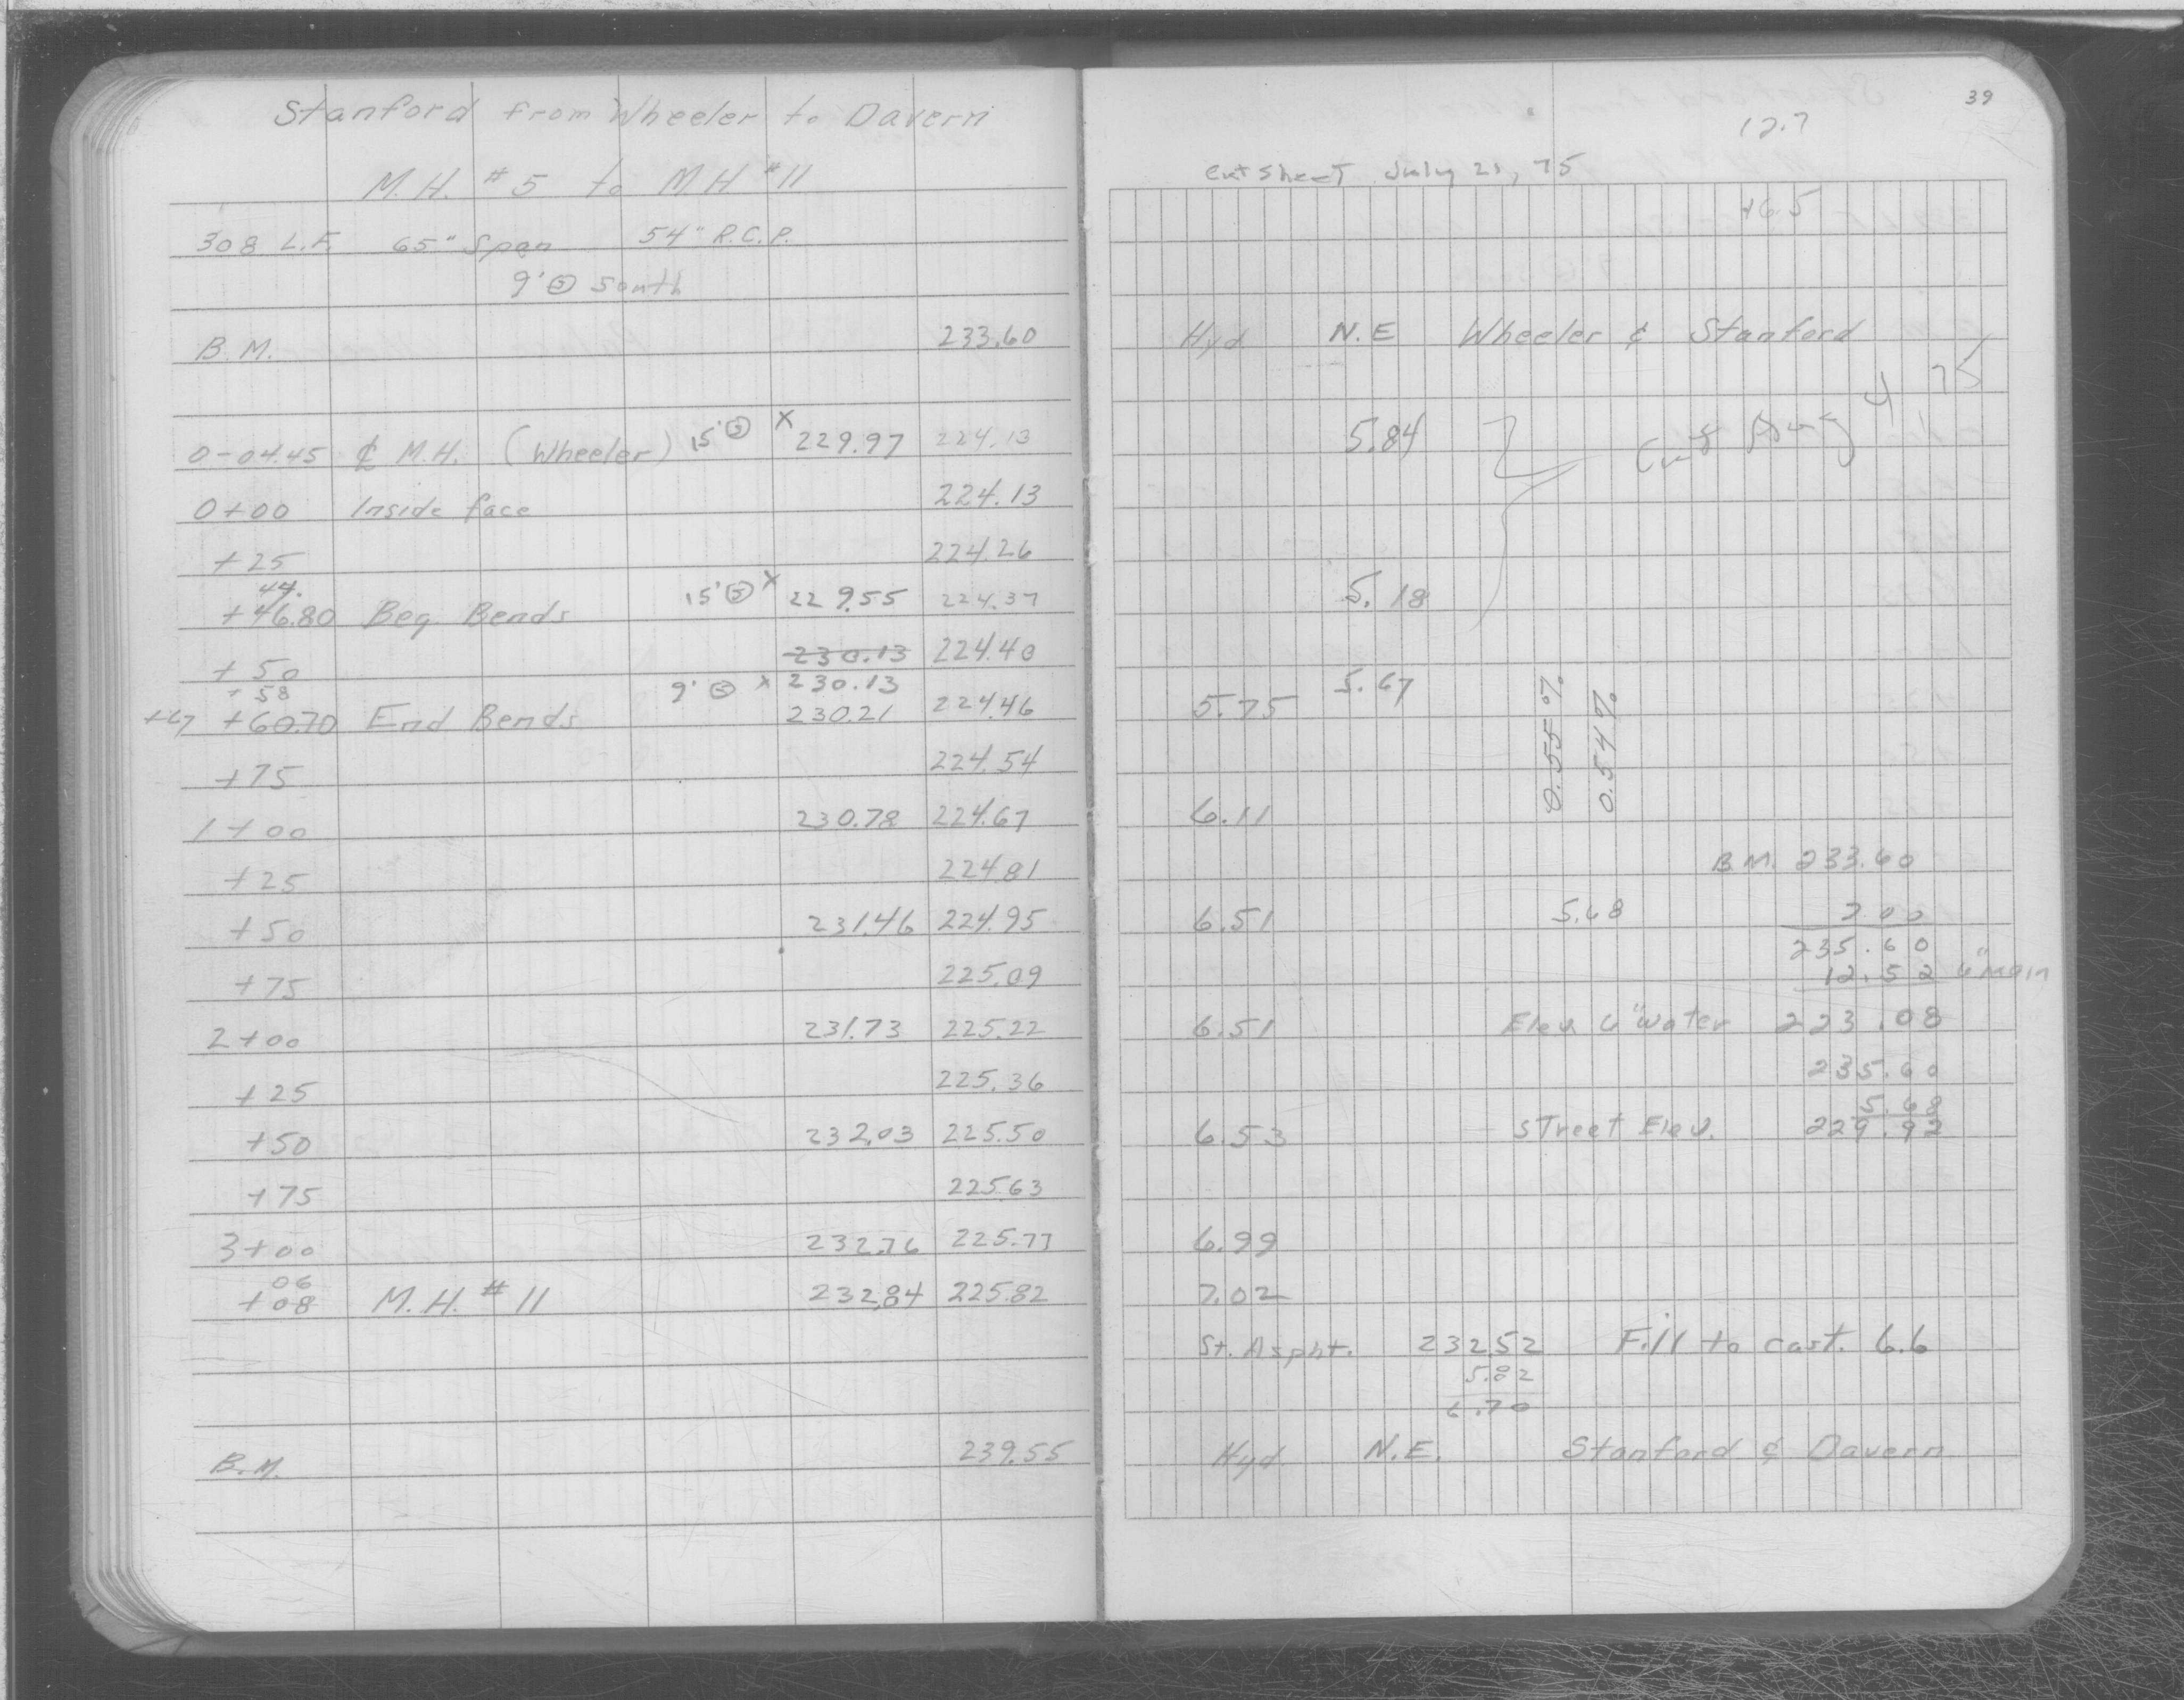 Stanford from Wheeler to Davern
M.H. #5 to MH #11
308 L.F. 65" Span 54" R.C.P.
9' @ South
B.M. 233.60
0-04.45 ₵ M.H. (Wheeler) 15' Ⓢ X 229.97 224.13
0+00 Inside face 224.13
+25 224.26
44.
+46.80 Beg. Bends 15' Ⓢ X 229.55 224.37
+50 230.13 224.40
+58 9' Ⓢ X 230.13
+67 +60.70 End Bends 230.21 224.46
+75 224.54
1+00 230.78 224.67
+25 224.81
+50 231.46 224.95
+75 225.09
2+00 231.73 225.22
+25 225.36
+50 232.03 225.50
+75 225.63
3+00 232.76 225.77
06
+08 M.H. #11 232.84 225.82
B.M. 239.55
39
12.7
cut sheet July 21, 75
16.5
Hyd N.E Wheeler & Stanford
5.84 Cut Aug 4, 75
5.18
5.67
5.75
0.55%
0.54%
6.11
B.M. 233.60
6.51 5.68 2.00
235.60
12.52 6" main
6.51 Elev. 6" water 223.08
235.60
5.68
6.53 Street Elev. 229.92
6.99
7.02
St. Aspht. 232.52 Fill to cast. 6.6
5.82
6.70
Hyd N.E. Stanford & Davern